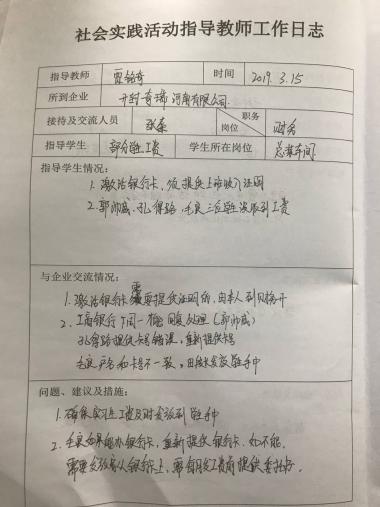 社会实践活动指导教师工作日志
指导教师 贾铭奇 时间 2019.3.15
所到企业 开封奇瑞河南有限公司
接待及交流人员 张森 职务岗位 财务
指导学生 部分 工资 学生所在岗位 总装车间
指导学生情况:
1. 激活银行卡,须提供上班收入证明
2. 郭帅威、孔得路、毛良三位 没收到工资
与企业交流情况:
1. 激活银行卡需要提供证明的,由本人到 开
2. 工商银行下周一 回复处理(郭帅威)
孔得路提供卡号错误,重新提供卡号
毛良户名和卡号不一致,
问题、建议及措施:
1. 确保实习生工资及时发放到 手中
2. 毛良如果能办银行卡,重新提供银行卡,如不能,
需要发放 人银行卡上,需每月发工资前提供委托书.